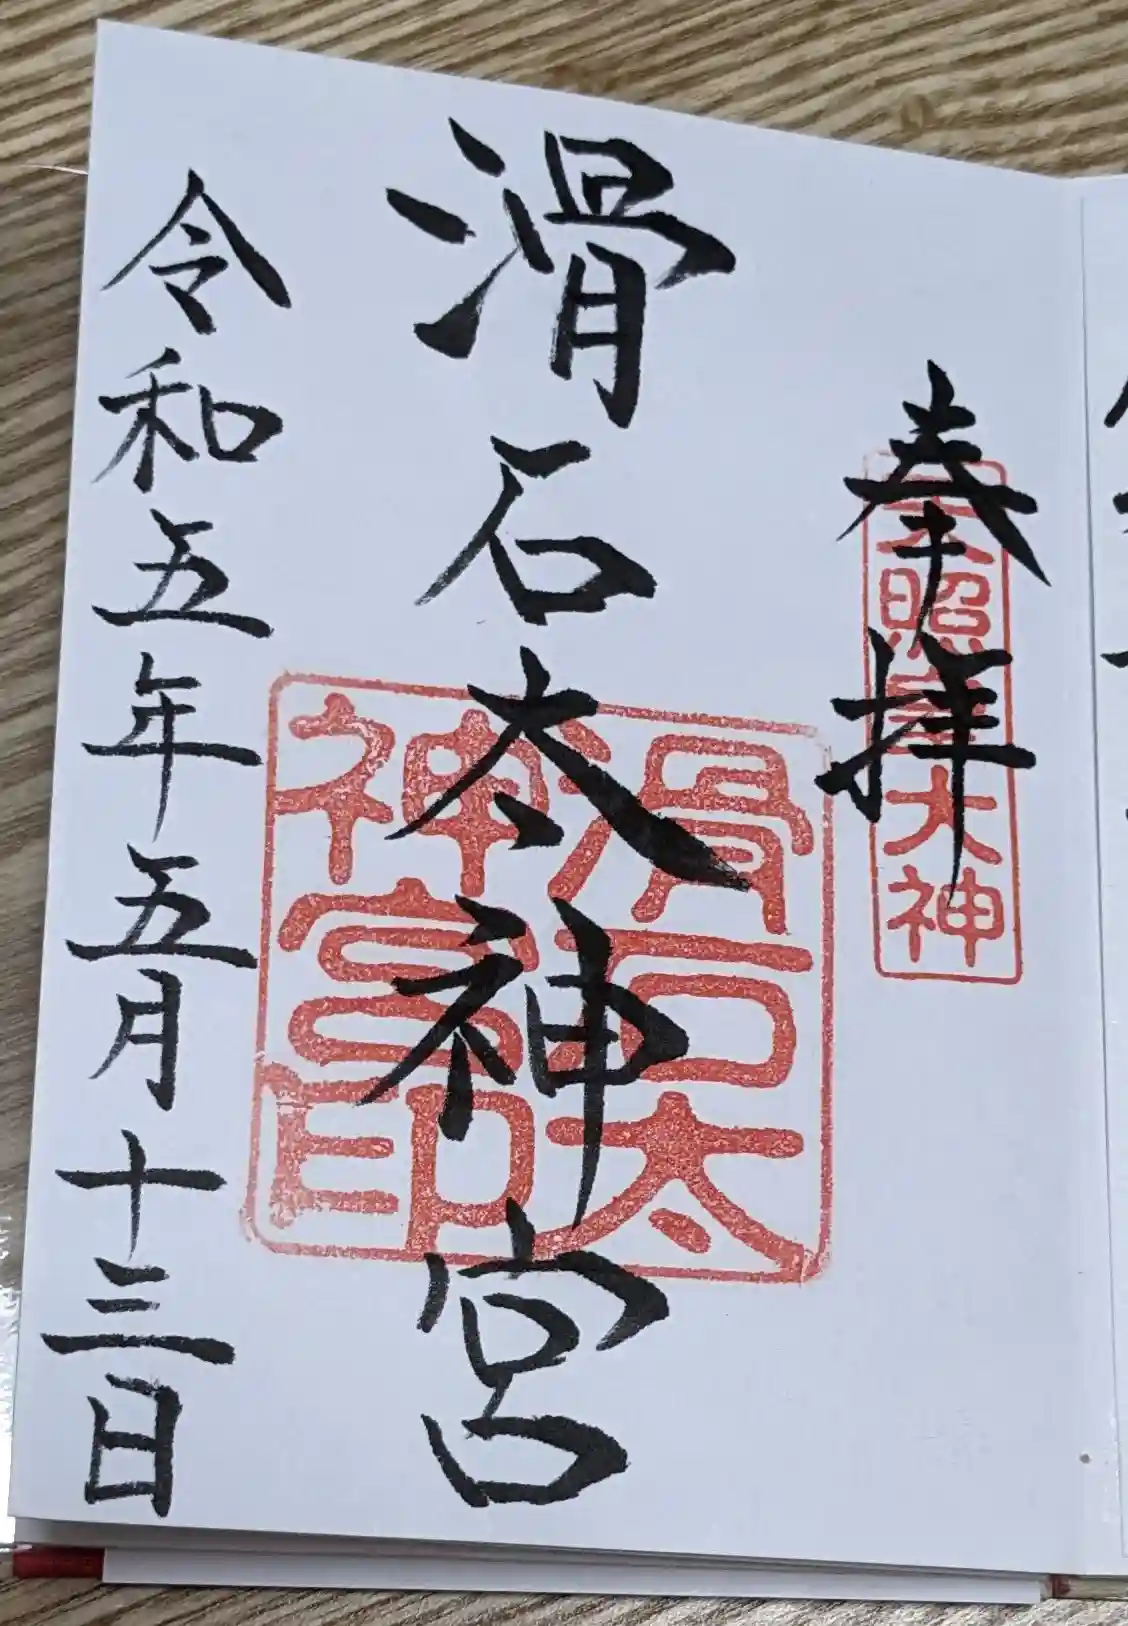 奉拝
天照皇大神
滑石太神宮
滑石太
神宮印
令和五年五月十三日